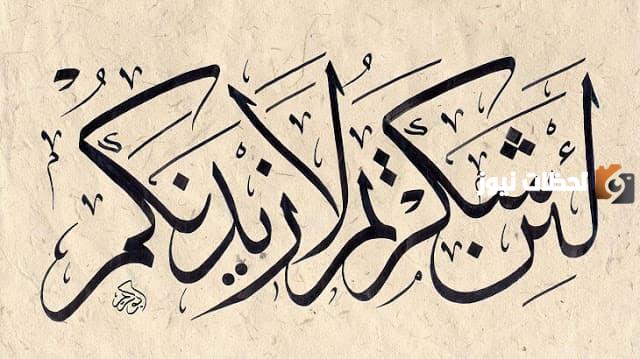 لئن شكرتم لأزيدنكم
لحظات نيوز